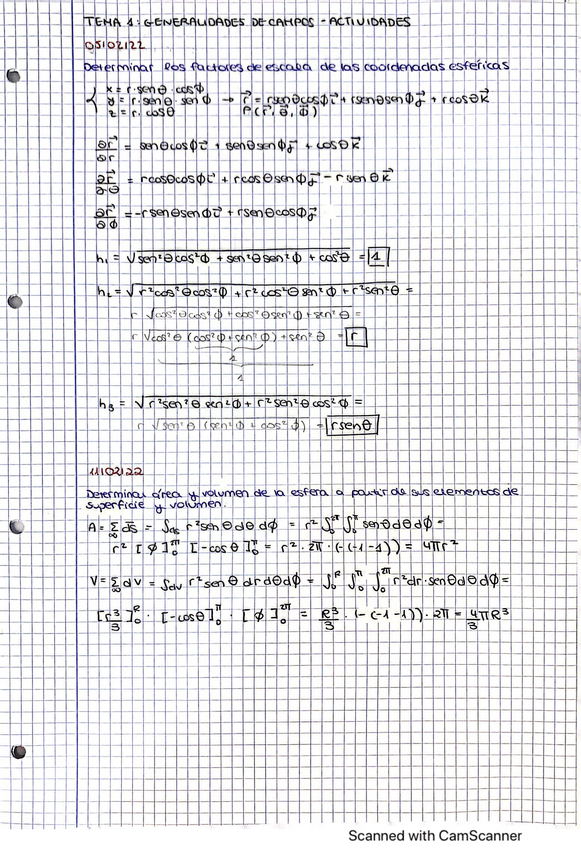 TEMA 1: GENERALIDADES DE CAMPOS - ACTIVIDADES
05/02/22
Determinar los factores de escala de las coordenadas esféricas
x = r·senθ·cosϕ
y = r·senθ·senϕ → r⃗ = rsenθcosϕi⃗ + rsenθsenϕj⃗ + rcosθk⃗
z = r·cosθ P(r⃗, θ⃗, ϕ⃗)
∂r⃗/∂r = senθcosϕi⃗ + senθsenϕj⃗ + cosθk⃗
∂r⃗/∂θ = rcosθcosϕi⃗ + rcosθsenϕj⃗ - rsenθk⃗
∂r⃗/∂ϕ = -rsenθsenϕi⃗ + rsenθcosϕj⃗
h₁ = √(sen²θcos²ϕ + sen²θsen²ϕ + cos²θ) = 1
h₂ = √(r²cos²θcos²ϕ + r²cos²θsen²ϕ + r²sen²θ) =
r √(cos²θcos²ϕ + cos²θsen²ϕ + sen²θ) =
r √(cos²θ (cos²ϕ + sen²ϕ) + sen²θ) = r
1
1
h₃ = √(r²sen²θsen²ϕ + r²sen²θcos²ϕ) =
r √(sen²θ (sen²ϕ + cos²ϕ)) = rsenθ
11/02/22
Determinar área y volumen de la esfera a partir de sus elementos de
superficie y volumen.
A = Σ∞ ds⃗ = ∫ds r²senθdθdϕ = r² ∫₀^2π ∫₀^π senθdθdϕ =
r² [ϕ]₀^2π [-cosθ]₀^π = r²·2π·(-(-1-1)) = 4πr²
V = Σ∞ dv = ∫dv r²senθdrdθdϕ = ∫₀^R ∫₀^π ∫₀^2π r²dr·senθdθdϕ =
[r³/3]₀^R · [-cosθ]₀^π · [ϕ]₀^2π = R³/3 · (-(-1-1))·2π = 4/3 πR³
Scanned with CamScanner